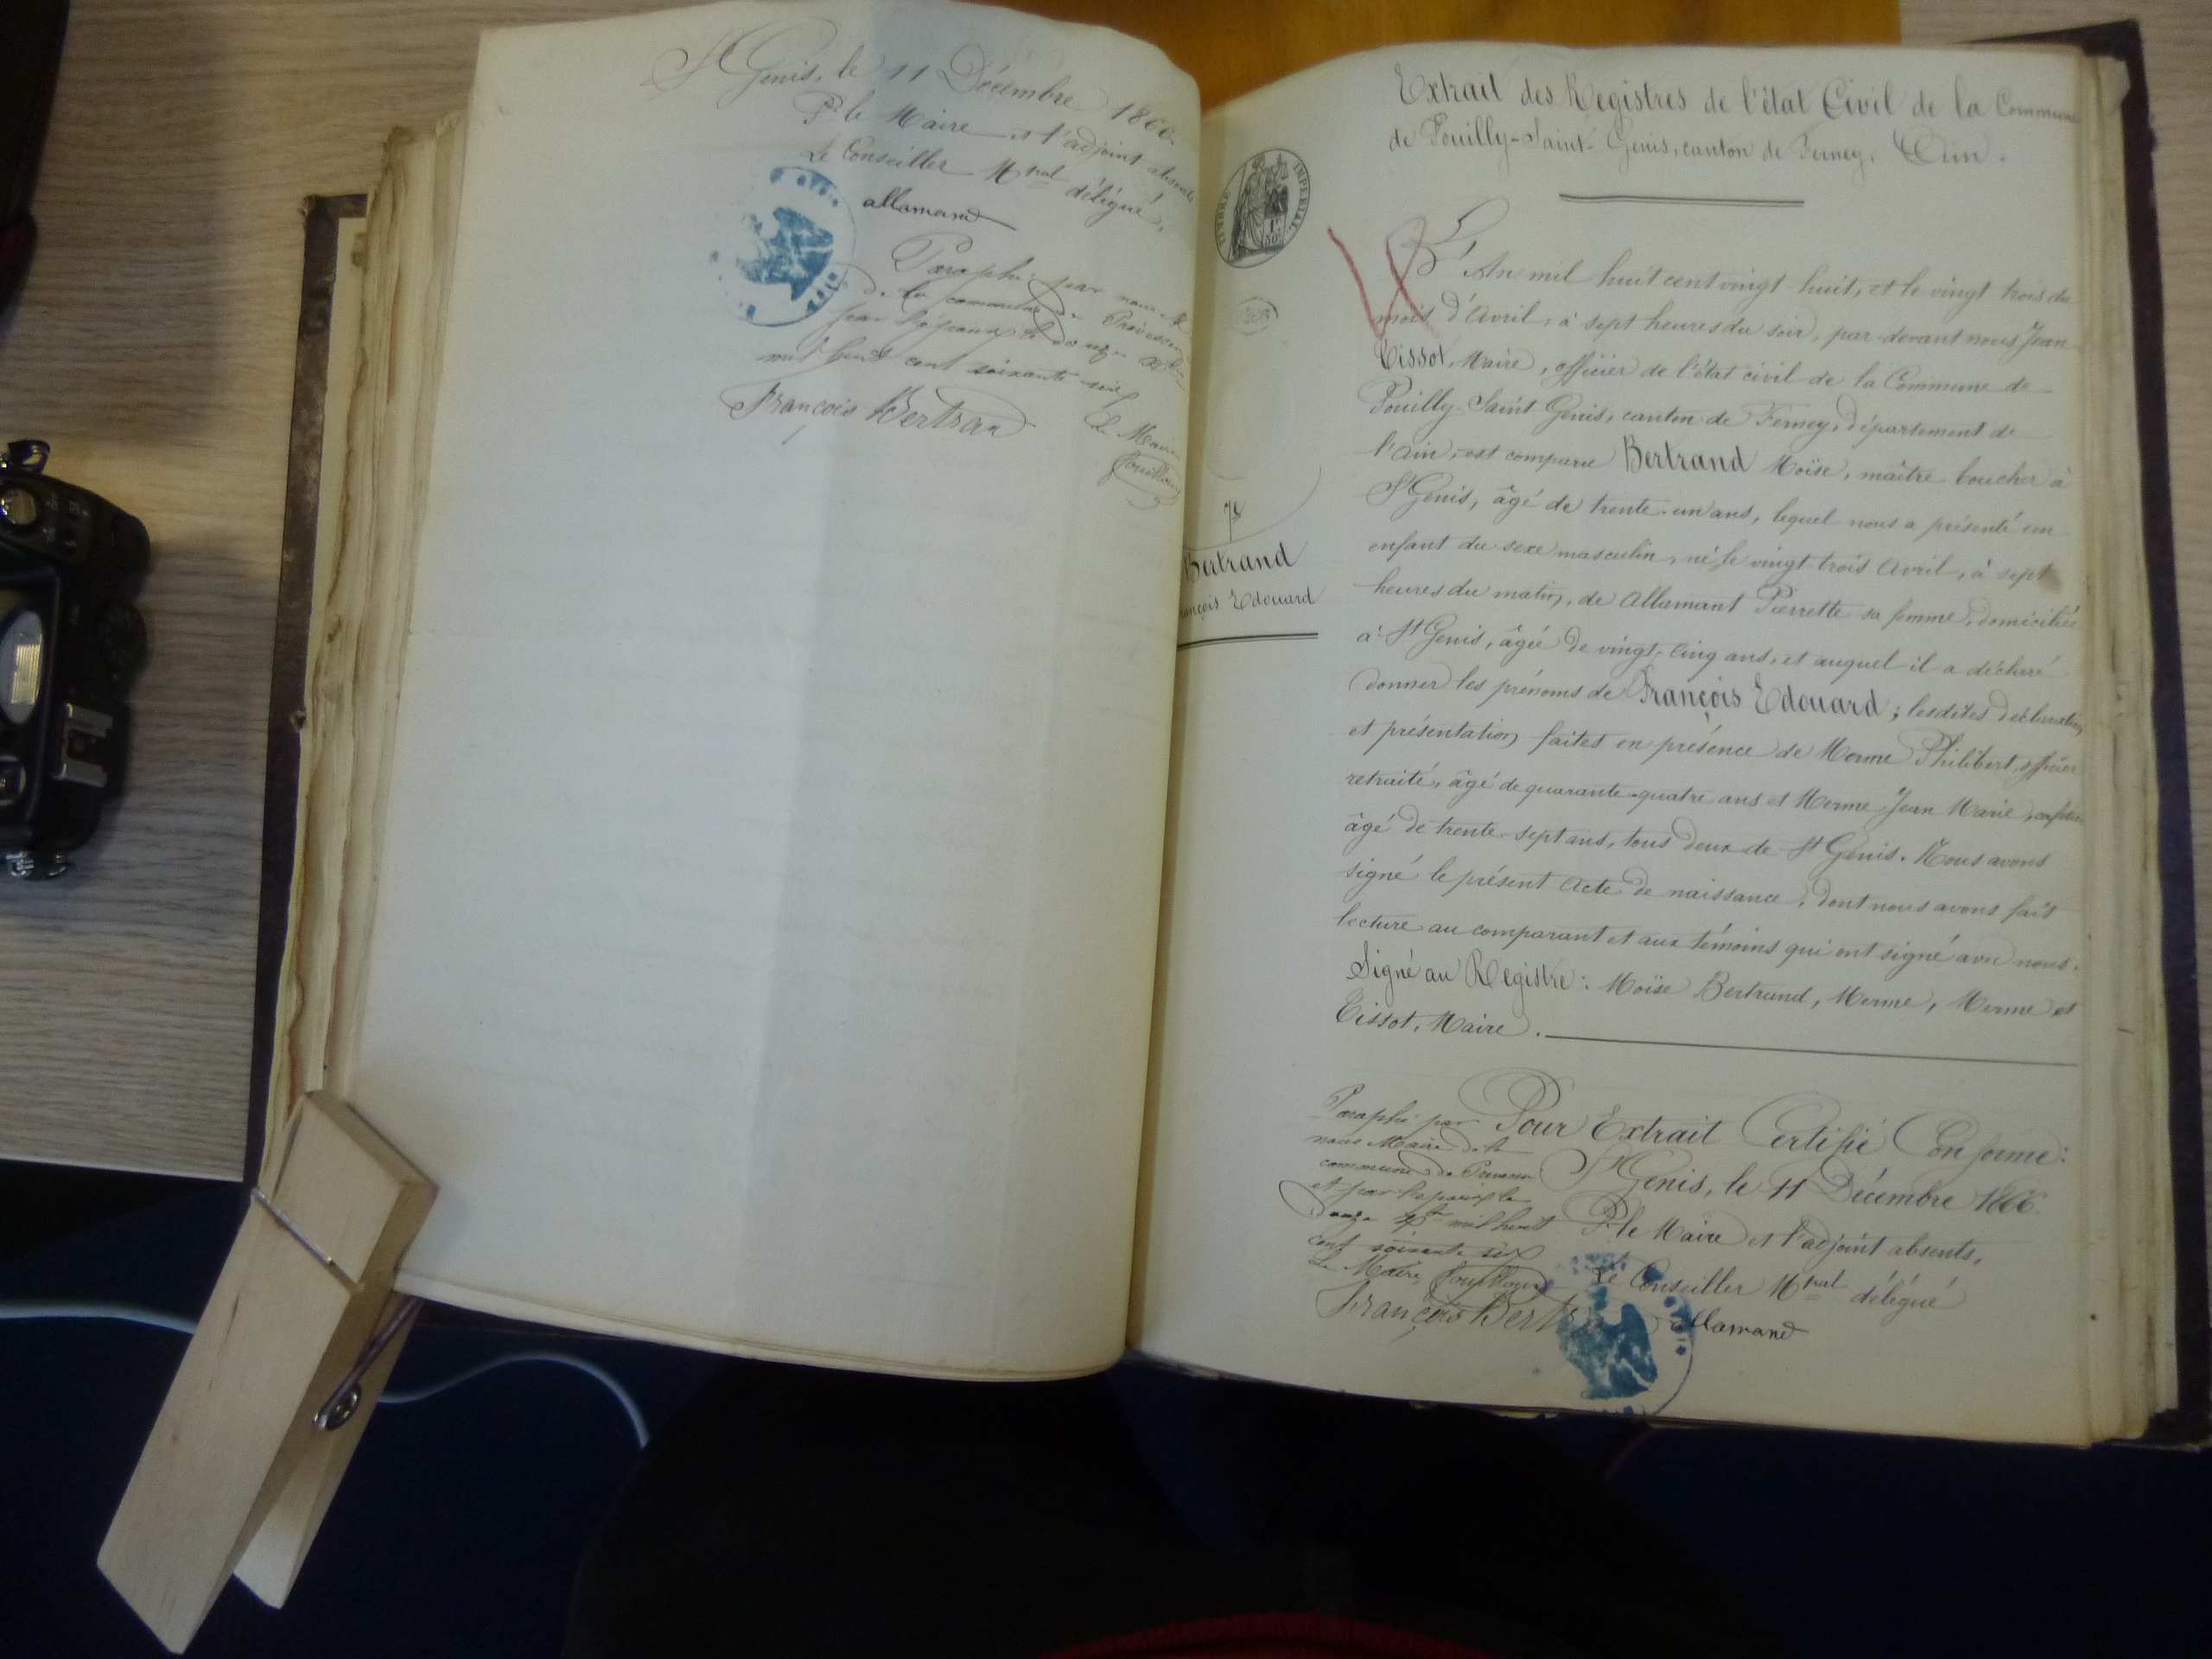 St Genis, le 11 Décembre 1866.
Pr le Maire et l'adjoint absents
Le Conseiller Mpal délégué,
allamand
Paraphé par nous M
de la commune de
par
mil huit cent soixante six
Le Maire
François Bertran
Extrait des Registres de l'état Civil de la Commune
de Pouilly-Saint-Genis, canton de Ferney, Ain.
TIMBRE IMPERIAL
1F
50C
L'An mil huit cent vingt huit, et le vingt trois du
mois d'Avril, à sept heures du soir, par-devant nous Jean
Tissot, Maire, officier de l'état civil de la Commune de
Pouilly-Saint Genis, canton de Ferney, département de
l'Ain, est comparu Bertrand Moïse, maître boucher à
St Genis, âgé de trente-un ans, lequel nous a présenté un
enfant du sexe masculin, né le vingt-trois Avril, à sept
heures du matin, de Allamant Pierrette sa femme, domiciliée
à St Genis, âgée de vingt-cinq ans, et auquel il a déclaré
donner les prénoms de François Edouard ; lesdites déclaration
et présentation faites en présence de Merme Philibert, officier
retraité, âgé de quarante-quatre ans et Merme Jean Marie,
âgé de trente-sept ans, tous deux de St Genis. Nous avons
signé le présent Acte de naissance, dont nous avons fait
lecture au comparant et aux témoins qui ont signé avec nous.
Signé au Registre : Moïse Bertrand, Merme, Merme et
Tissot, Maire.
Bertrand
rançois Edouard
Pour Extrait Certifié Conforme :
St Genis, le 11 Décembre 1866.
Pr le Maire et l'adjoint absents,
Le Conseiller Mpal délégué
Allamand
Paraphé par
nous Maire de la
commune de
et par le
douze Xbre mil huit
cent soixante six
Le Maire
François Bertr